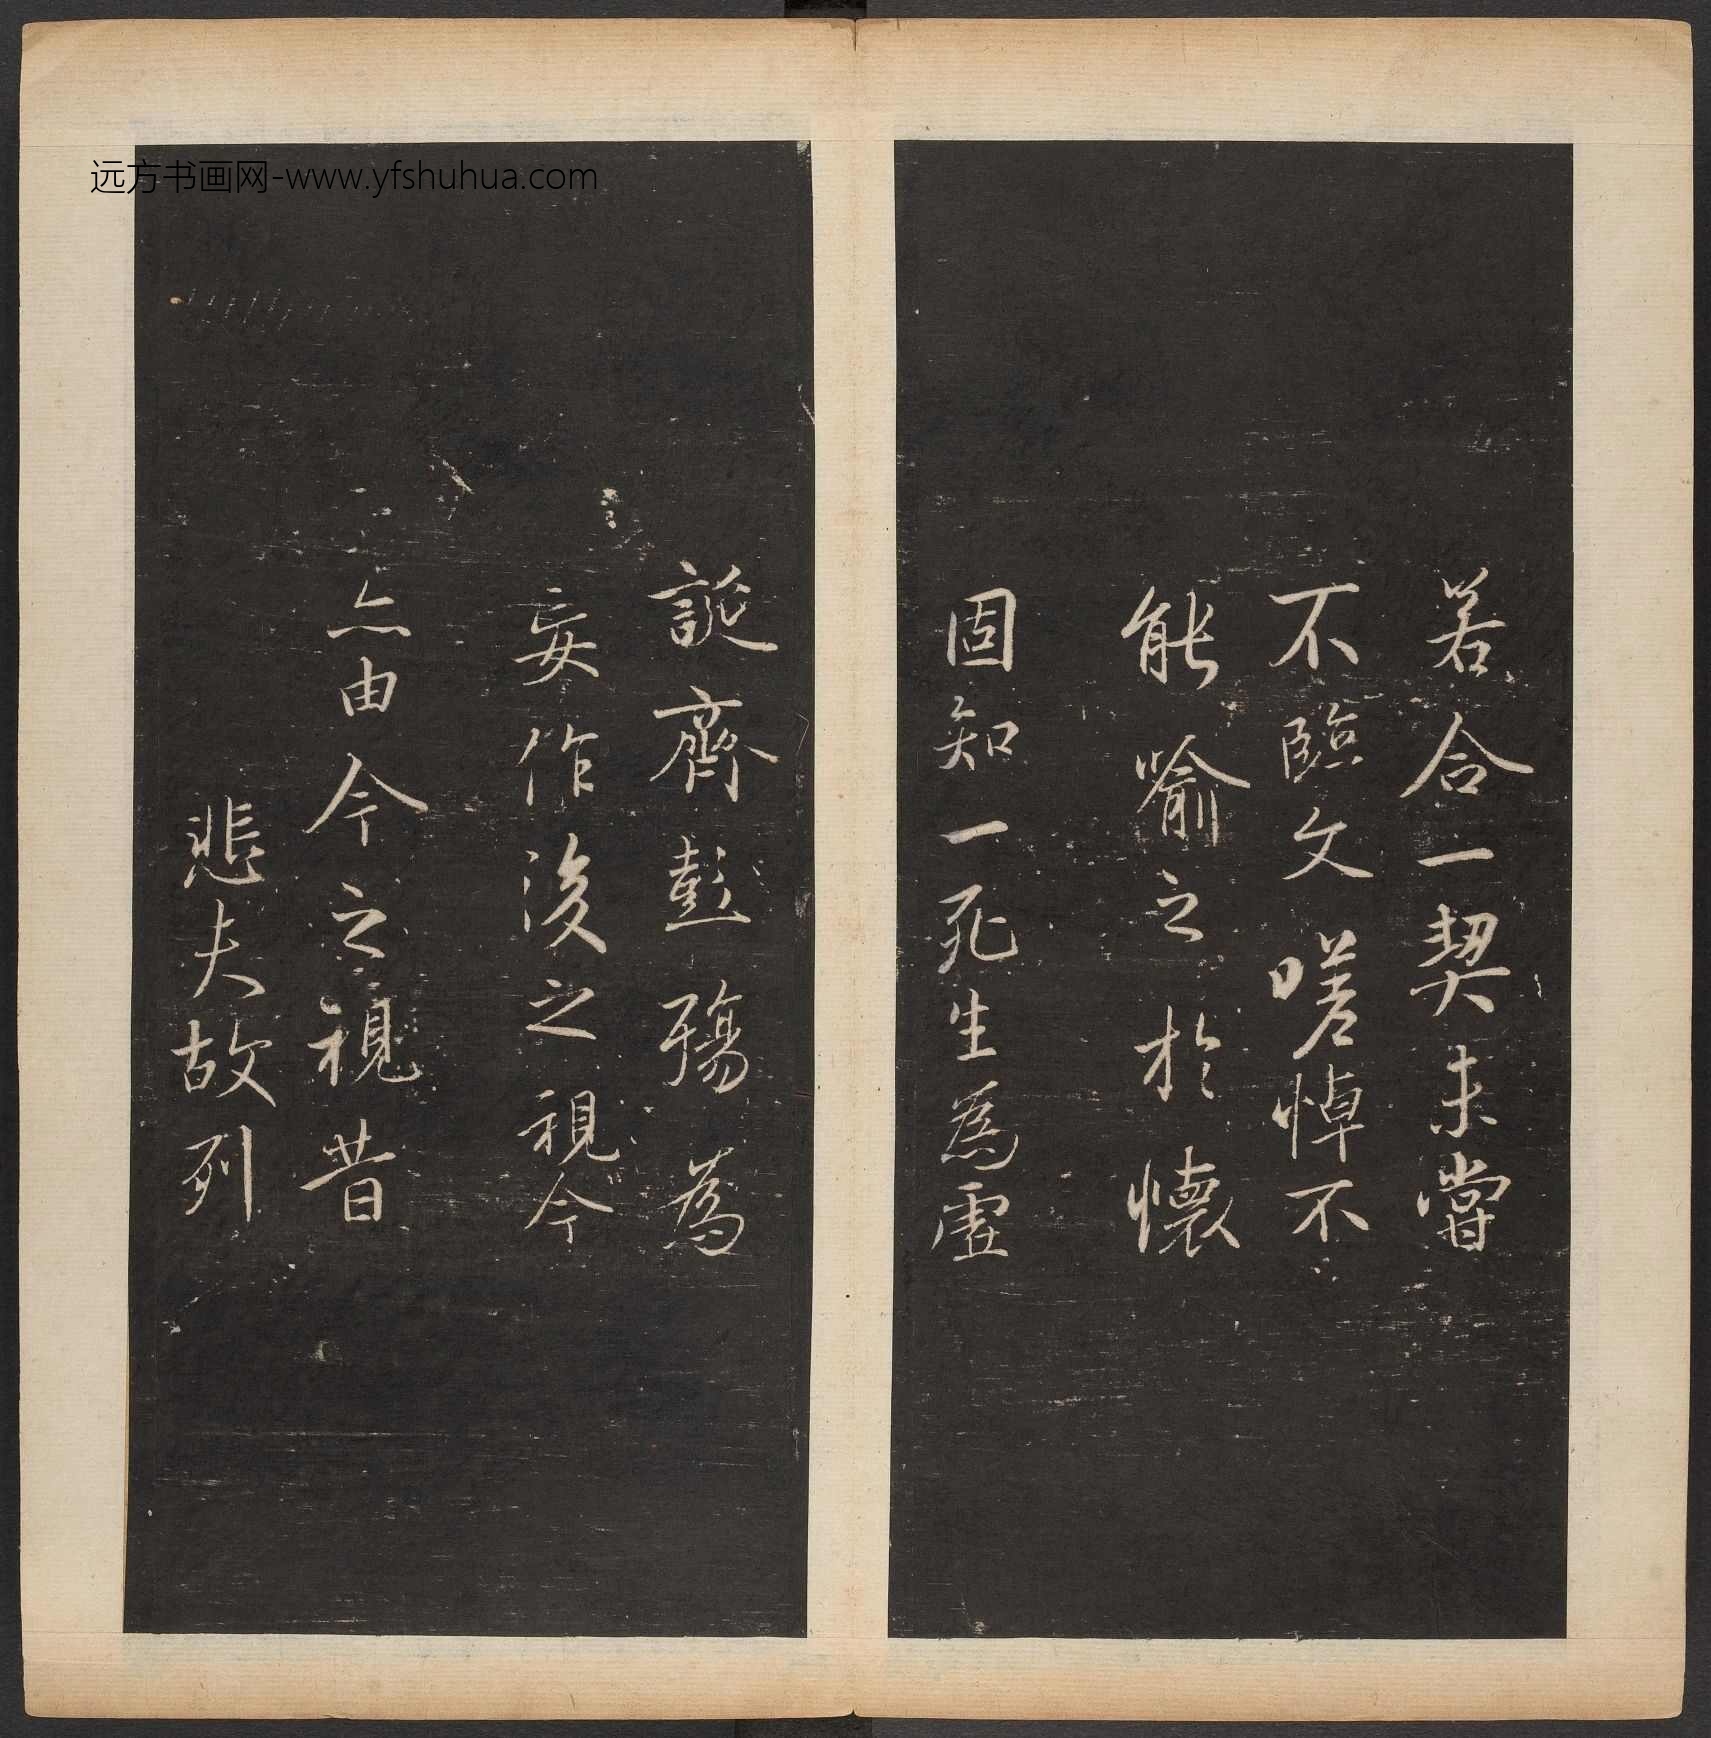 远方书画网-www.yfshuhua.com
若合一契未嘗
不臨文嗟悼不
能喻之於懷
固知一死生為虛
誕齊彭殤為
妄作後之視今
亦由今之視昔
悲夫故列